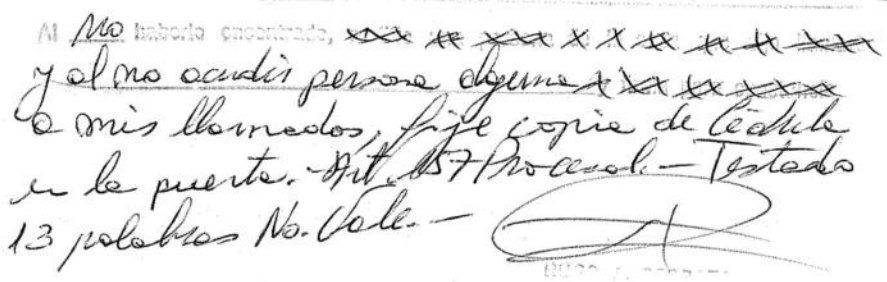 Al No haberlo encontrado,
y al no acudir persona alguna
a mis llamados, fije copia de Cédula
en la puerta.- Art. 157 Procesal.- Testado
13 palabras No. Vale.-